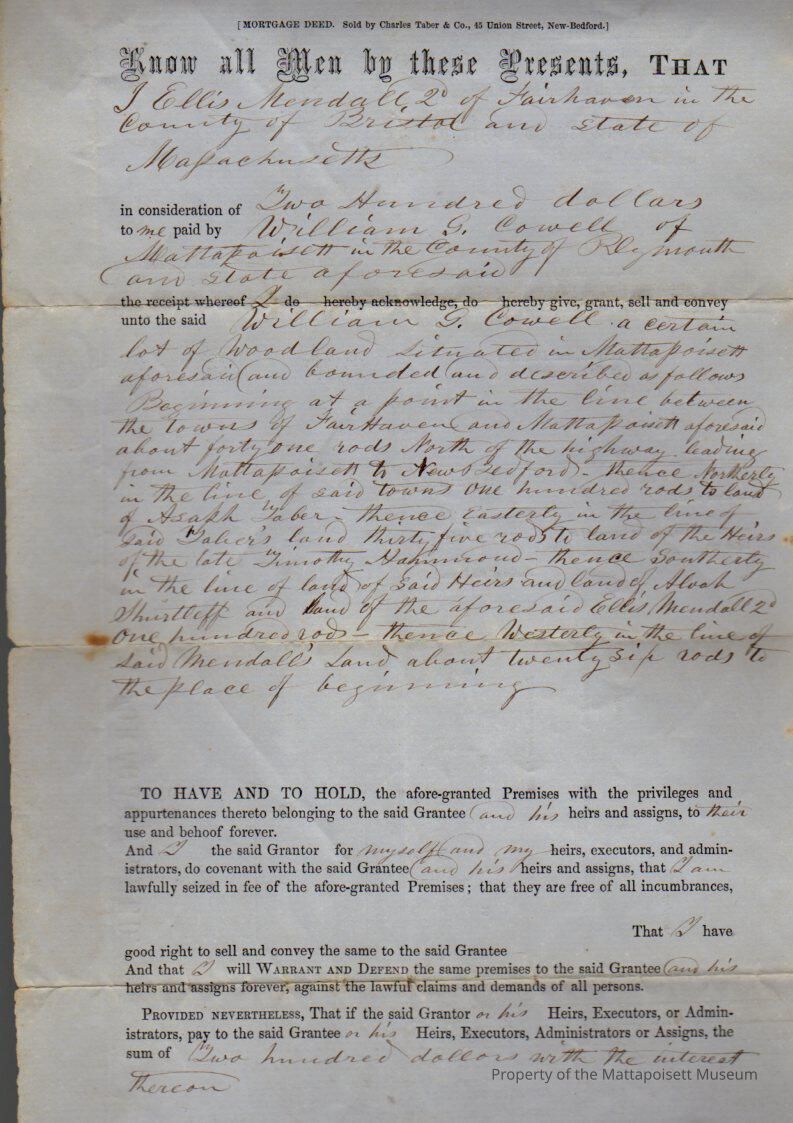 [MORTGAGE DEED. Sold by Charles Taber & Co., 45 Union Street, New-Bedford.]
Know all Men by these Presents, THAT
I Ellis Mendall, 2d of Fairhaven in the
County of Bristol and state of
Massachusetts
in consideration of Two Hundred dollars
to me paid by William G. Cowell of
Mattapoisett in the County of Plymouth
and state aforesaid
the receipt whereof I do hereby acknowledge, do hereby give, grant, sell and convey
unto the said William G. Cowell a certain
lot of woodland situated in Mattapoisett
aforesaid and bounded and described as follows
Beginning at a point in the line between
the towns of FairHaven and Mattapoisett aforesaid
about forty one rods North of the highway leading
from Mattapoisett to New Bedford - thence Northerly
in the line of said towns one hundred rods to land
of Asaph Taber - thence Easterly in the line of
said Taber's land thirty five rods to land of the Heirs
of the late Timothy Hammond - thence Southerly
in the line of land of said Heirs and land of Alvah
Shurtleff and land of the aforesaid Ellis Mendall 2d
one hundred rods - thence Westerly in the line of
said Mendall's Land about twenty six rods to
the place of beginning
TO HAVE AND TO HOLD, the afore-granted Premises with the privileges and
appurtenances thereto belonging to the said Grantee and his heirs and assigns, to their
use and behoof forever.
And I the said Grantor for myself and my heirs, executors, and admin-
istrators, do covenant with the said Grantee and his heirs and assigns, that I am
lawfully seized in fee of the afore-granted Premises; that they are free of all incumbrances,
That I have
good right to sell and convey the same to the said Grantee
And that I will WARRANT AND DEFEND the same premises to the said Grantee and his
heirs and assigns forever, against the lawful claims and demands of all persons.
PROVIDED NEVERTHELESS, That if the said Grantor or his Heirs, Executors, or Admin-
istrators, pay to the said Grantee or his Heirs, Executors, Administrators or Assigns, the
sum of Two hundred dollars with the interest
thereon
Property of the Mattapoisett Museum